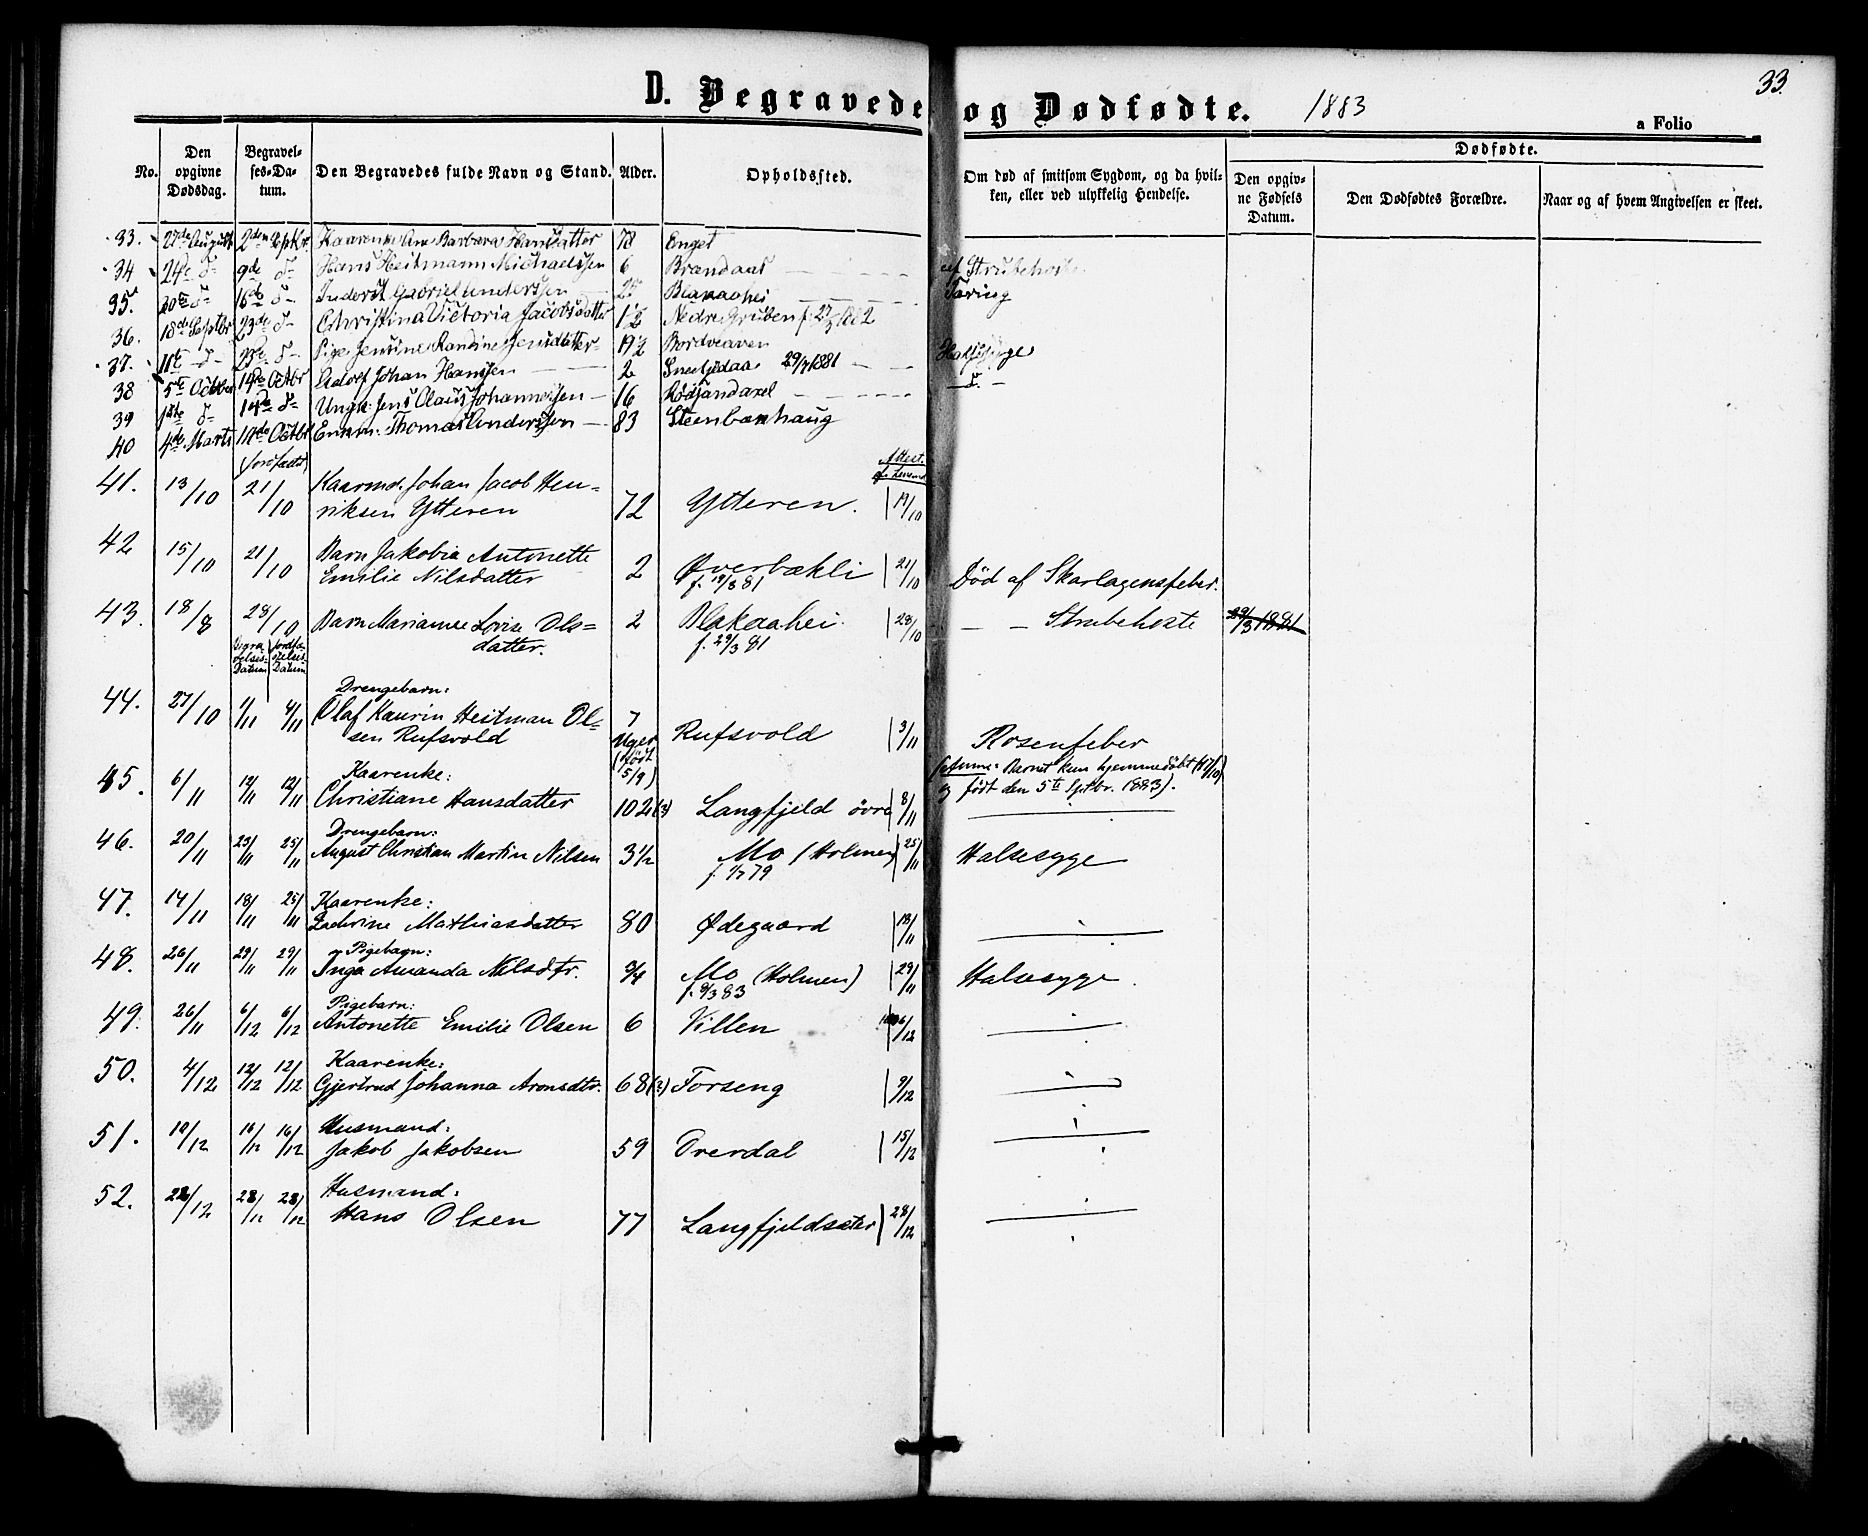 33.
D. Begravede og Dødfødte. 1883
a Folio
No. Den opgivne Dødsdag. Begravelses-Datum. Den Begravedes fulde Navn og Stand. Alder. Opholdssted. Om død af smitsom Sygdom, og da hvilken, eller ved ulykkelig Hendelse. Dødfødte. Den opgivne Fødsels Datum. Den Dødfødtes Forældre. Naar og af hvem Angivelsen er skeet.
33. 27de August 2den Septbr Kaarenke Ane Barbara Hansdatter 78 Enget
34 24de d 9de d Hans Heitmann Michaelssen 6 Brændaas af Strubehoste
35. 20de d 16de d Inderst Gabriel Anderssen Blakaahei Tæring
36. 18de Septbr 23de d Christina Victoria Jacobsdatter 1½ Nedre Gruben
37. 11te d 23de d Pige Jensine Randine Jensdatter 19½ Bordveaven Halssyge
38 5te October 14de Octbr Adolf Johan Hanssen 2 29/7 1881 d
39 1ste d 14de d Ungk. Jens Olaus Johannessen 16 Rødsandaxel
40 4de Marts Octbr Enkm. Thomas Anderssen 83 Steenbækhaug
(Jordfæstet)
Attest
41. 13/10 21/10 Kaarmd. Johan Jacob Hen=
riksen Ytteren 72 Ytteren. 19/10
42 15/10 21/10 Barn Jakobia Antonette
Emilie Nilsdatter 2 Øverbækli 21/10 Død af Skarlagensfeber.
f. 19/8 81
43. 18/8 28/10 Barn Marianne Lovise Ols=
datter. 2 Blakaahei 28/10 — — Strubehoste 29/3 1881
f. 29/3 81
Begravelses-Datum Jordfæstelses-Datum
44. 27/10 4/11 4/11 Drengebarn:
Olaf Kaurin Heitman Ol=
sen Rufsvold 7 Uger (født 5/9) Rufsvold 3/11 Rosenfeber
(Anm: Barnet kun hjemmedøbt (17/10)
og født den 5te Septbr. 1883).
45. 6/11 12/11 12/11 Kaarenke:
Christiane Hansdatter 102 Langfjeld øvre 8/11
46. 20/11 25/11 25/11 Drengebarn:
August Christian Martin Nilsen 3½ Mo (Holmen) 25/11 Halsesyge
47. 14/11 18/11 25/11 Kaarenke:
Mathiasdatter 80 Ødegaard 18/11
48. 26/11 29/11 29/11 Pigebarn:
Inga Amanda Nilsdtr. ¾ Mo (Holmen) 29/11 Halsesyge.
f. 9/3 83
49. 26/11 6/12 6/12 Pigebarn:
Antonette Emilie Olsen 6 Villen 6/12
50. 4/12 12/12 12/12 Kaarenke:
Gjertrud Johanna Aronsdtr. 68 Forseng 9/12
51. 10/12 16/12 16/12 Husmand:
Jakob Jakobsen 59 Drerdal 15/12
52. 22/12 28/12 28/12 Husmand:
Hans Olsen 77 Langfjeldsæter 28/12